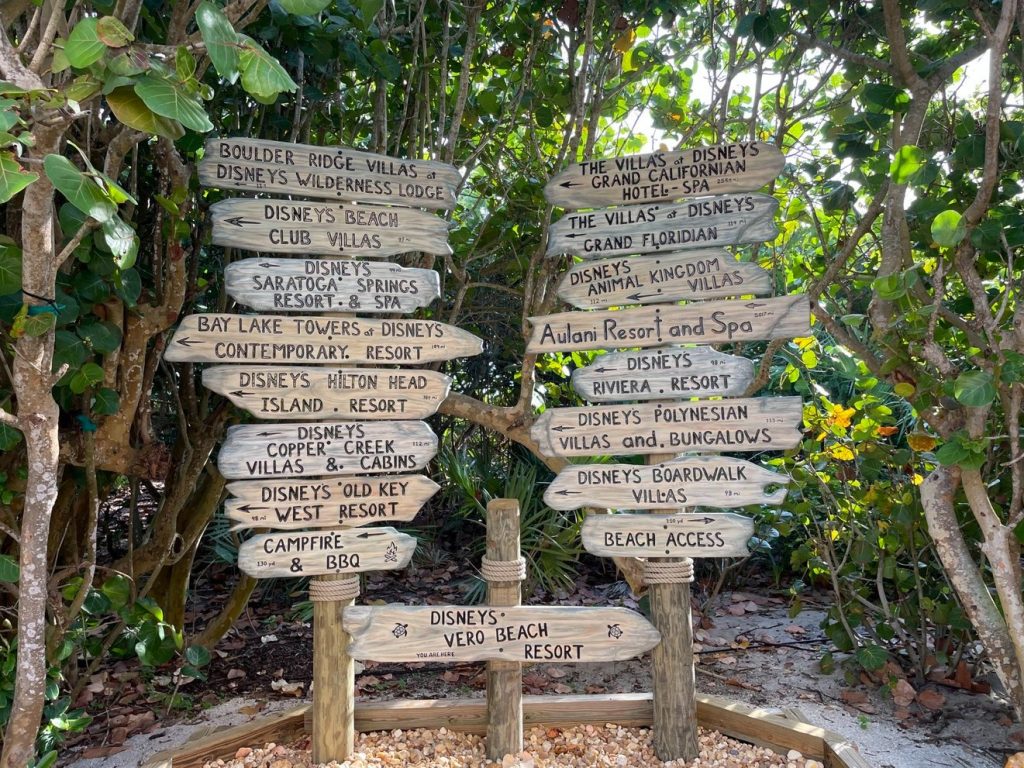 BOULDER RIDGE VILLAS at
DISNEYS WILDERNESS LODGE
DISNEYS BEACH
CLUB VILLAS
DISNEYS
SARATOGA SPRINGS
RESORT & SPA
BAY LAKE TOWERS at DISNEYS
CONTEMPORARY RESORT
DISNEYS HILTON HEAD
ISLAND RESORT
DISNEYS
COPPER CREEK
VILLAS & CABINS
112 mi
DISNEYS OLD KEY
WEST RESORT
98 mi
CAMPFIRE
& BBQ
130 yd
THE VILLAS at DISNEYS
GRAND CALIFORNIAN
HOTEL - SPA
THE VILLAS at DISNEYS
GRAND FLORIDIAN
DISNEYS
ANIMAL KINGDOM
VILLAS
112 mi
Aulani Resort and Spa
DISNEYS
RIVIERA RESORT
DISNEYS POLYNESIAN
VILLAS and BUNGALOWS
DISNEYS BOARDWALK
VILLAS
BEACH ACCESS
DISNEYS
VERO BEACH
RESORT
YOU ARE HERE